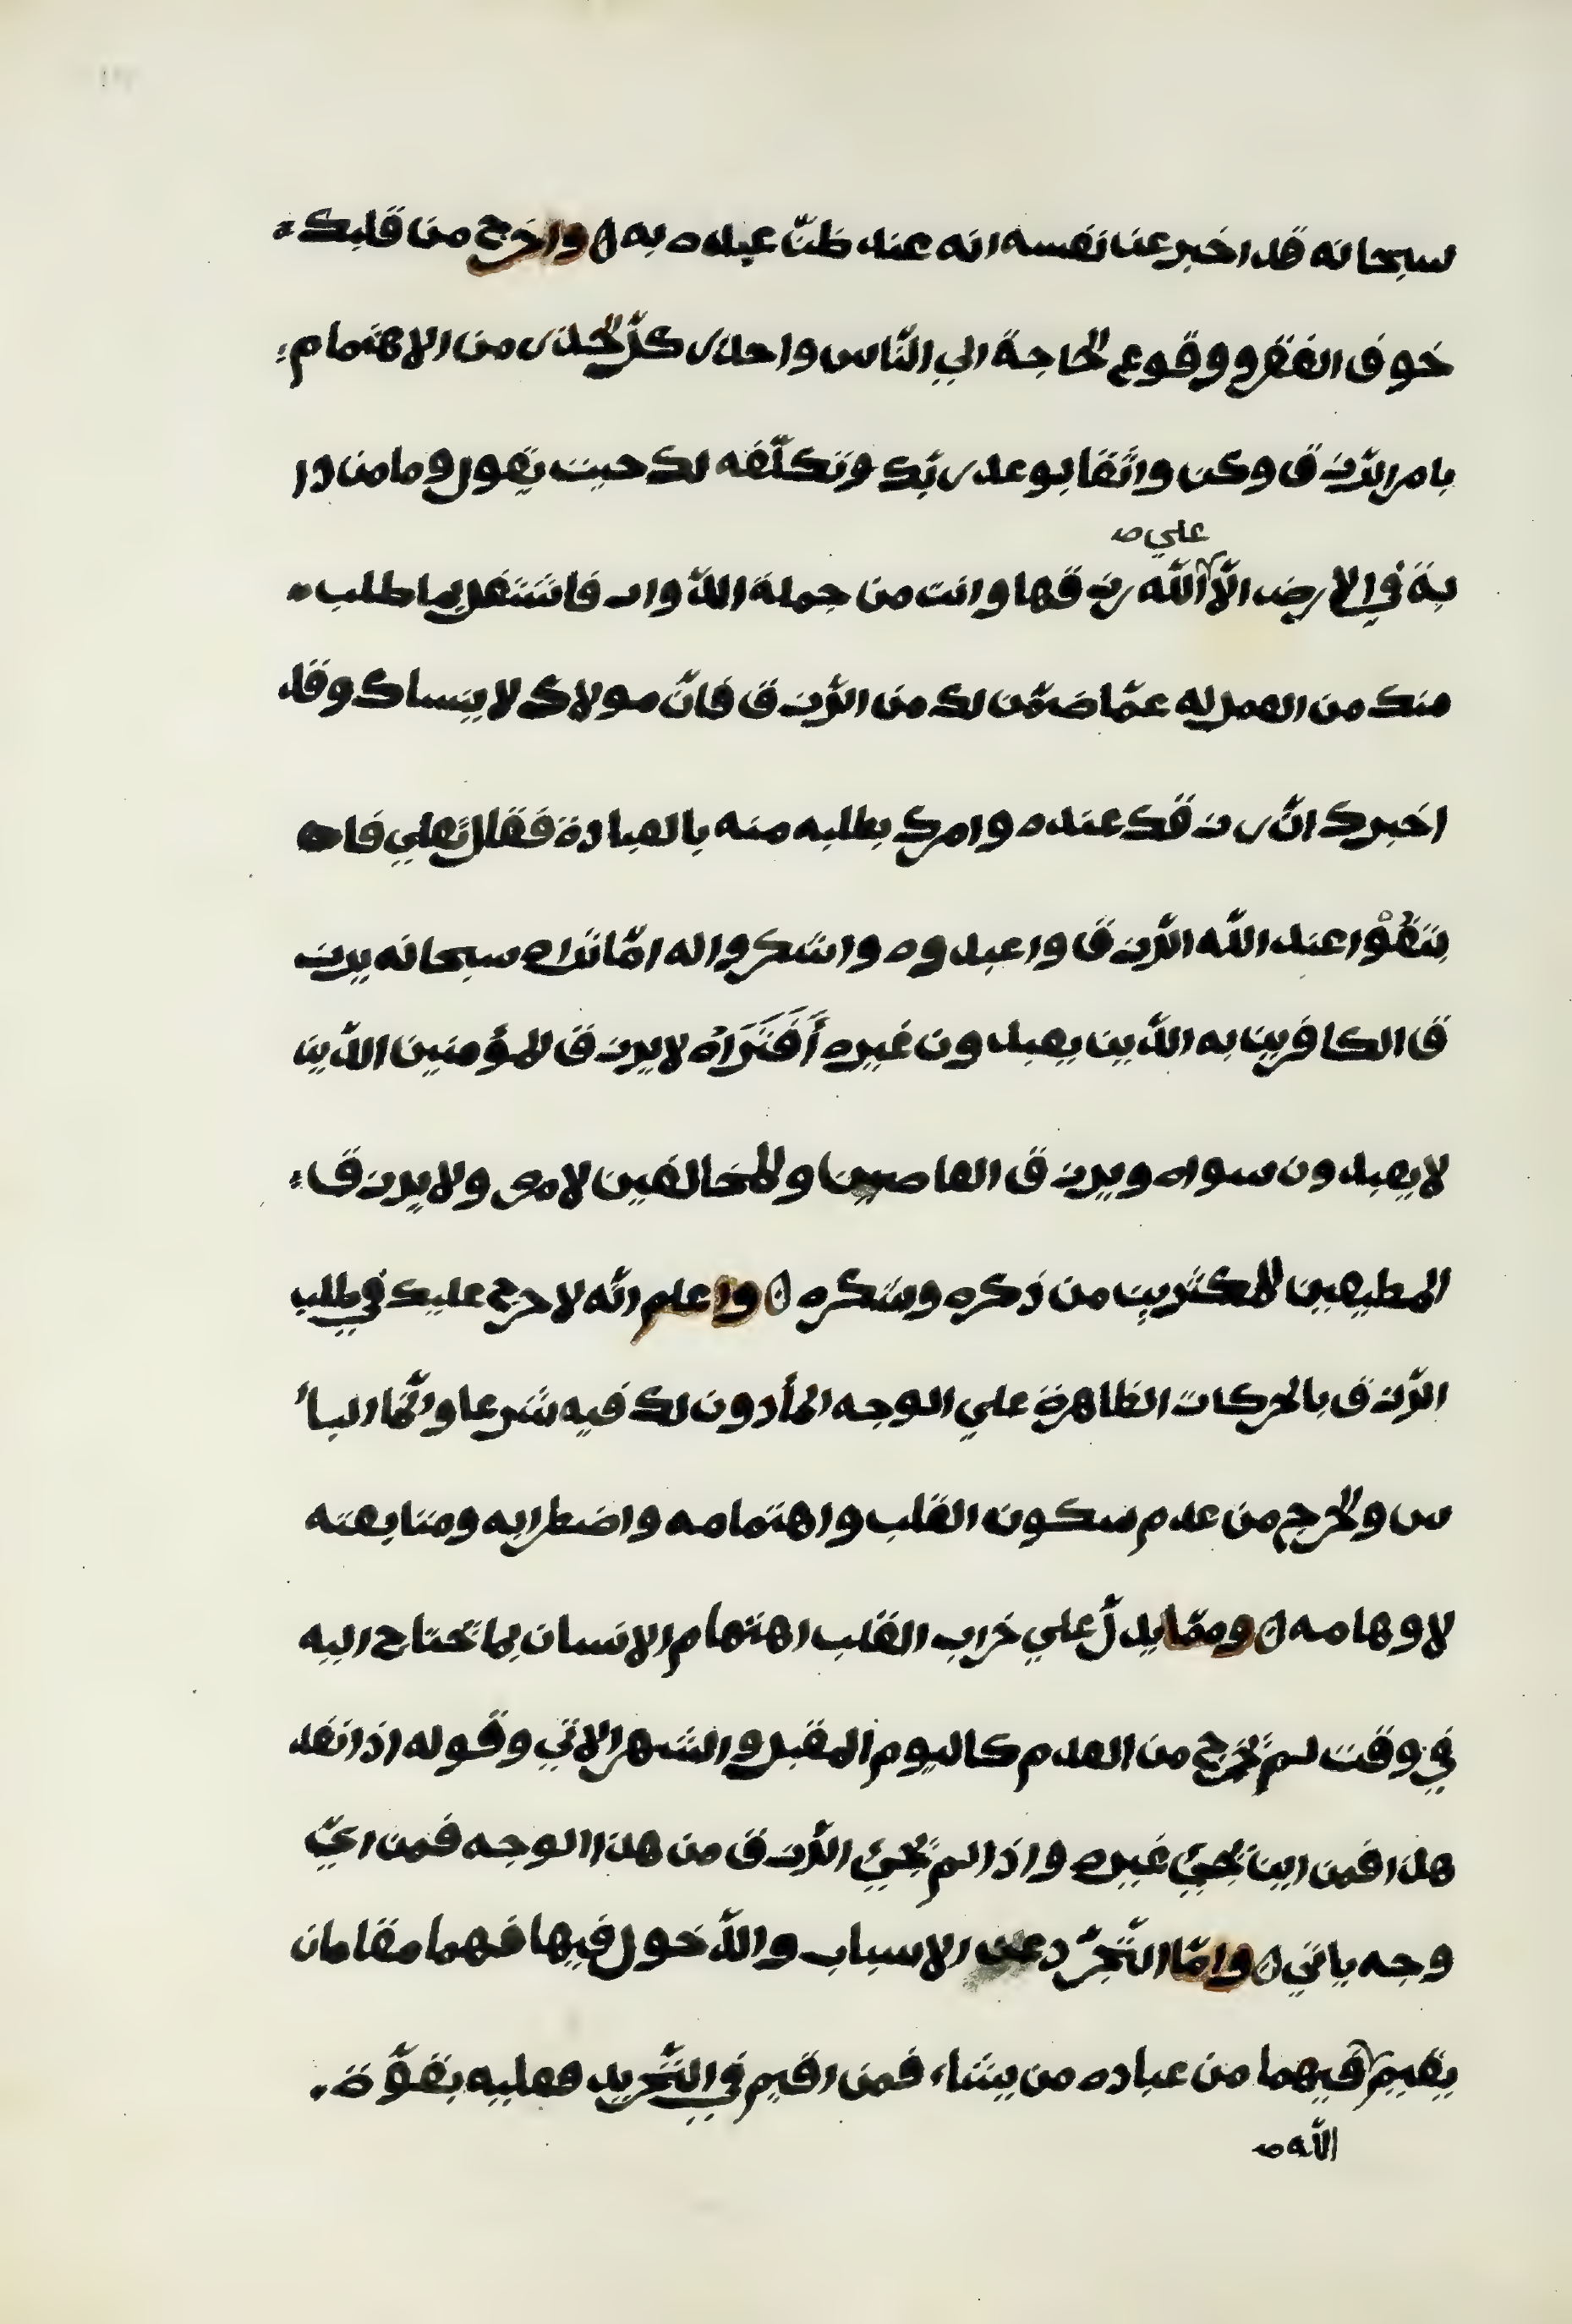 سبحانه قد اخبر عن نفسه انه عند ظنّ عبده به ۝ واخرج من قلبك
خوف الفقر ووقوع الحاجة الي النّاس واحذر كلّ الحذر من الاهتمام
بامر الرّزق وكن واثقا بوعد ربّك وتكلّفه لك حيث يقول وما من دا
بة في الارض الّا علي الله رزقها وانت من جملة الدّواب فاشتغل بما طلب
منك من العمل له عمّا ضمّن لك من الرّزق فانّ مولاك لا ينساك وقد
اخبرك انّ رزقك عنده وامرك بطلبه منه بالعبادة فقال تعلي فا
بتغُوْا عند الله الرّزق واعبدوه واشكروا له امّا تراه سبحانه يرز
ق الكافرين به الّذين يعبدون غيره أَفَتَرَاهُ لا يرزق المؤمنين الّذين
لا يعبدون سواه ويرزق العاصين والمخالفين لامره ولا يرزق
المطيعين المكثرين من ذكره وشكره ۝ واعلم انّه لا حرج عليك في طلب
الرّزق بالحركات الظاهرة علي الوجه المأذون لك فيه شرعا وانّما البأ
س والحرج من عدم سكون القلب واهتمامه واضطرابه ومتابعته
لاوهامه ۝ وممّا يدلّ علي خراب القلب اهتمام الانسان بما تحتاج اليه
في وقت لم تخرج من العدم كاليوم المقبل والشهر الاتي وقوله اذا نفد
هذا فمن اين تجيئ غيره واذا لم تجيئ الرّزق من هذا الوجه فمن ايّ
وجه ياتي ۝ وامّا التّجرّد عن الاسباب والدّخول فيها فهما مقامان
يقيم الله فيهما من عباده من يشاء فمن اقيم في التّجريد فعليه بقوّة